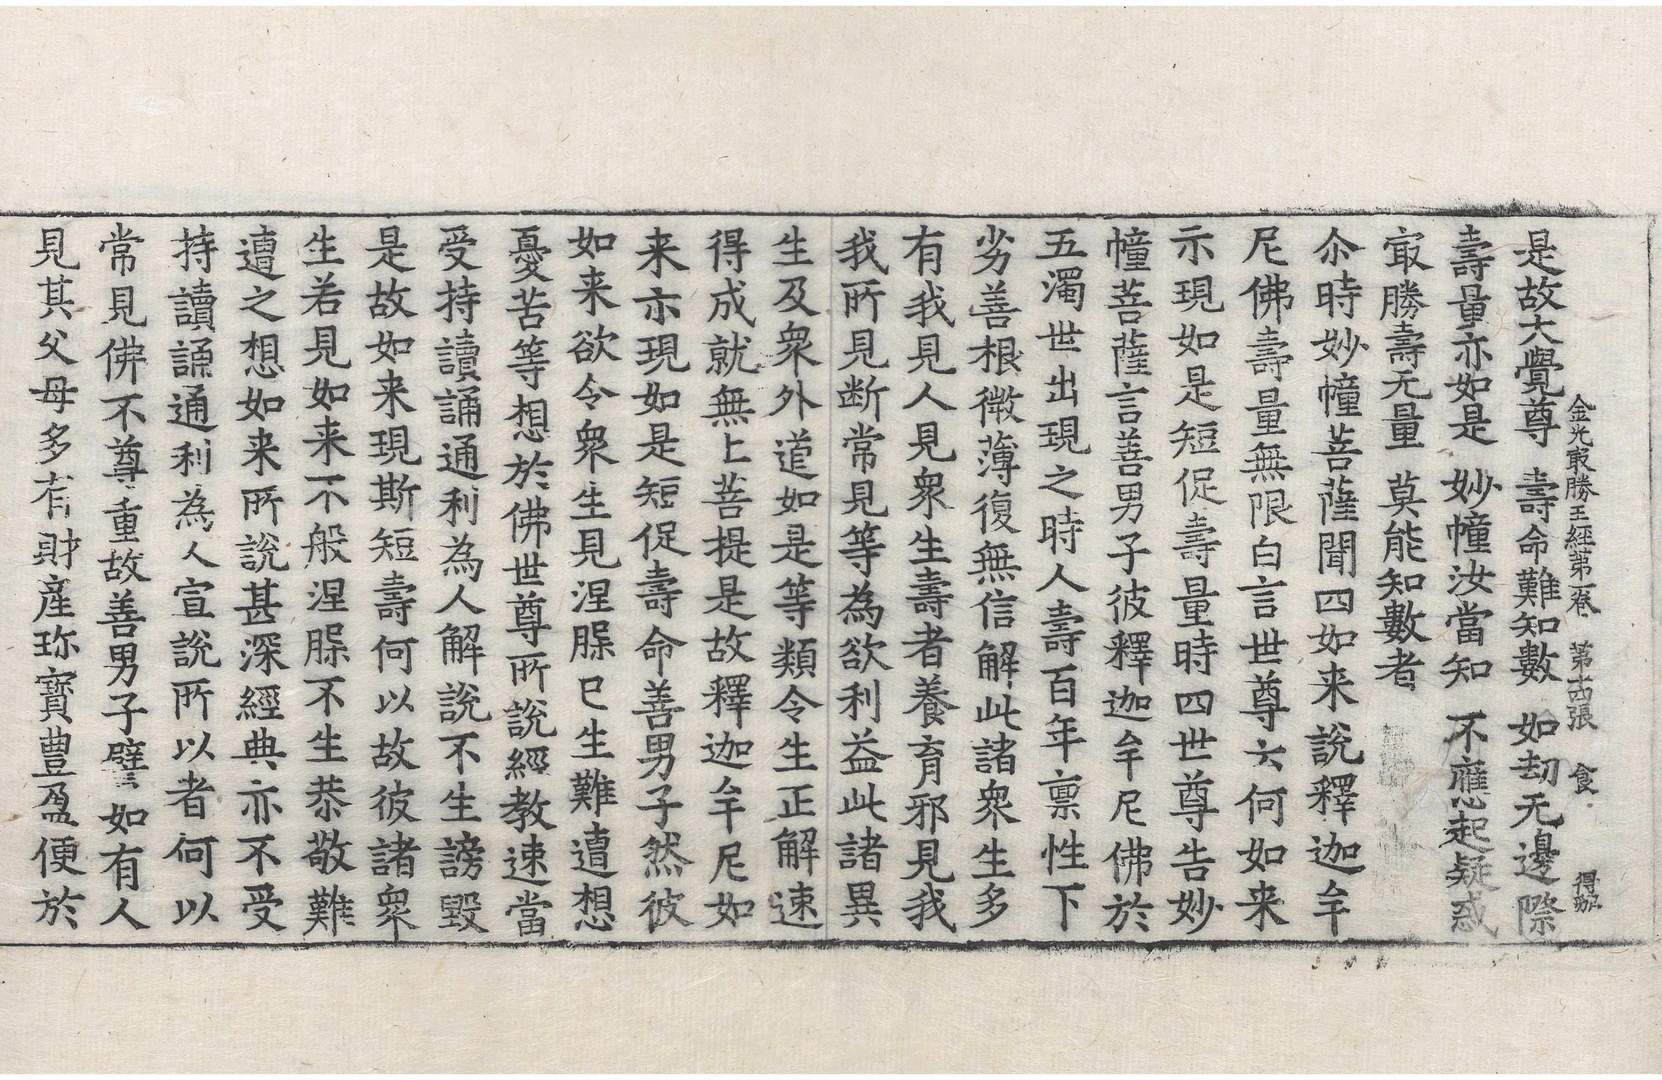 金光㝡勝王經第一卷　第十四張　食　得珈
是故大覺尊　壽命難知數　如劫无邊際
壽量亦如是　妙幢汝當知　不應起疑惑
㝡勝壽无量　莫能知數者
尒時妙幢菩薩聞四如来說釋迦牟
尼佛壽量無限白言世尊云何如来
示現如是短促壽量時四世尊告妙
幢菩薩言善男子彼釋迦牟尼佛於
五濁世出現之時人壽百年禀性下
劣善根微薄復無信解此諸衆生多
有我見人見衆生壽者養育邪見我
我所見断常見等為欲利益此諸異
生及衆外道如是等類令生正解速
得成就無上菩提是故釋迦牟尼如
来示現如是短促壽命善男子然彼
如来欲令衆生見涅槃已生難遭想
憂苦等想於佛世尊所說經教速當
受持讀誦通利為人解說不生謗毀
是故如来現斯短壽何以故彼諸衆
生若見如来不般涅槃不生恭敬難
遭之想如来所說甚深經典亦不受
持讀誦通利為人宣說所以者何以
常見佛不尊重故善男子譬如有人
見其父母多有財產珎寶豊盈便於